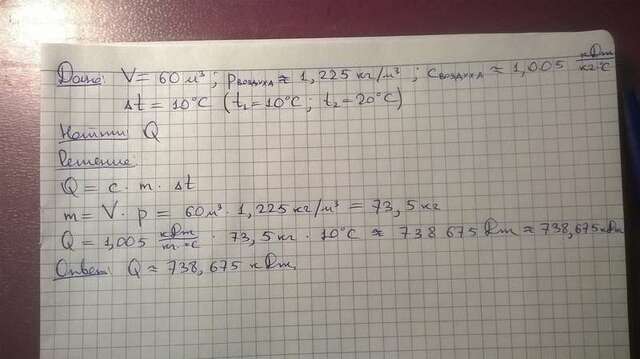 Дано: V = 60 м³; ρвоздуха ≈ 1,225 кг/м³; cвоздуха ≈ 1,005 кДж/кг·°C
Δt = 10°C (t₁=10°C; t₂=20°C)
Найти: Q
Решение:
Q = c · m · Δt
m = V · ρ = 60 м³ · 1,225 кг/м³ = 73,5 кг
Q = 1,005 кДж/кг·°C · 73,5 кг · 10°C ≈ 738 675 Дж ≈ 738,675 кДж
Ответ: Q ≈ 738,675 кДж.